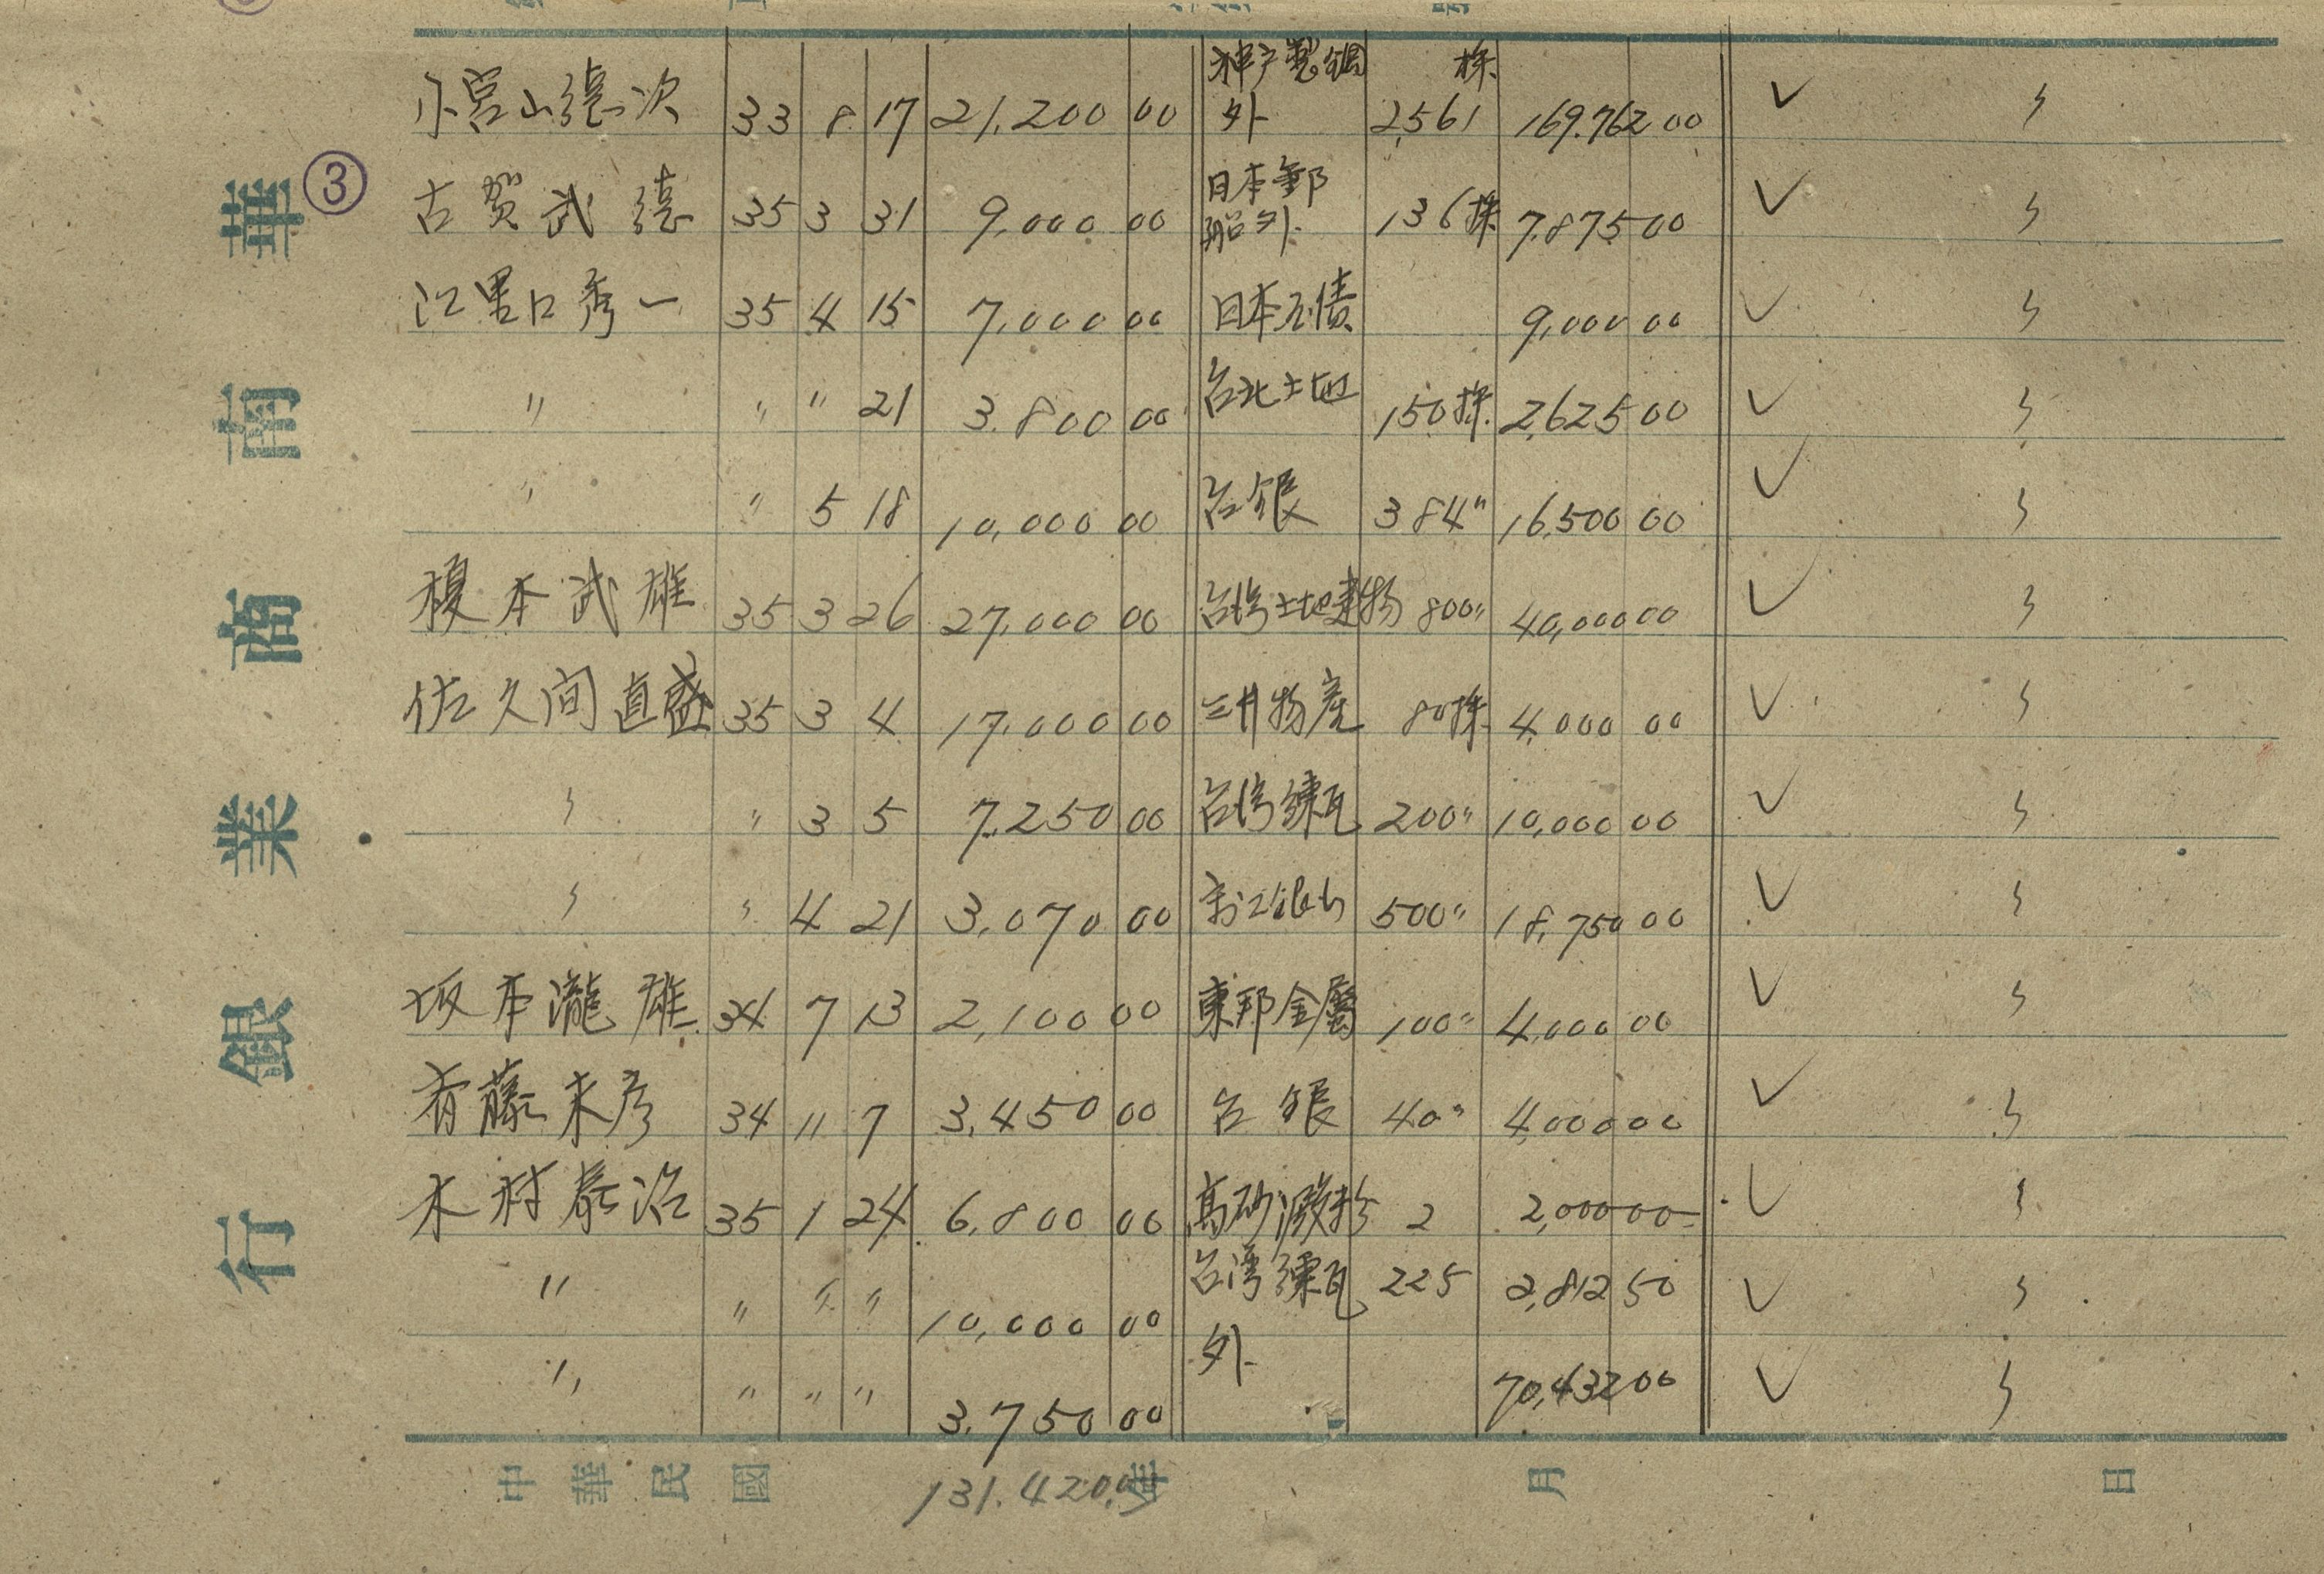 華南商業銀行
③
小宮山德次 33 8 17 21,200 00 神戸製鋼外 株 2,561 169.762 00 ✓ 〃
古賀武德 35 3 31 9,000 00 日本郵船外 136株 7,875 00 ✓ 〃
江里口秀一 35 4 15 7,000 00 日本公債 9,000 00 ✓ 〃
〃 〃 〃 21 3.800 00 台北土地 150株 2,625 00 ✓ 〃
〃 〃 5 18 10,000 00 台銀 384〃 16,500 00 ✓ 〃
榎本武雄 35 3 26 27,000 00 台湾土地建物 800〃 40,000 00 ✓ 〃
佐久间直盛 35 3 4 17,000 00 三井物産 80株 4,000 00 ✓ 〃
〃 〃 3 5 7.250 00 台湾煉瓦 200〃 10,000 00 ✓ 〃
〃 〃 4 21 3,070 00 500〃 18,750 00 ✓ 〃
坂本瀧雄 34 7 13 2,100 00 東邦金屬 100〃 4,000 00 ✓ 〃
斉藤末彦 34 11 7 3,450 00 台銀 40〃 4,000 00 ✓ 〃
木村泰治 35 1 24 6,800 00 高砂 2 2,000 00 ✓ 〃
〃 〃 〃 〃 10,000 00 台湾煉瓦 225 2,812 50 ✓ 〃
〃 〃 〃 〃 3,750 00 外 70,432 00 ✓ 〃
中華民國 年 月 日
131.420.00